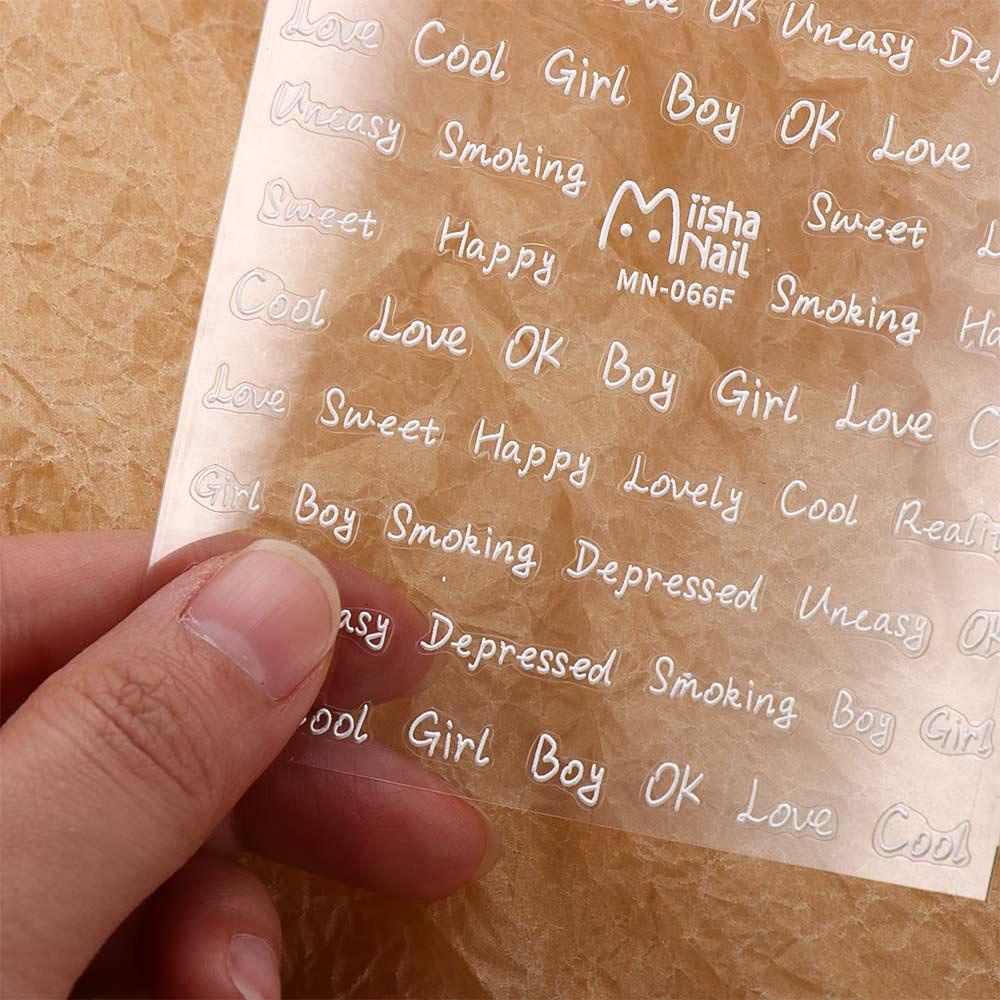 OK Uneasy
Love Cool Girl Boy OK Love
Uneasy Smoking
Miisha
Nail
MN-066F
Sweet
Sweet Happy
Smoking
Cool Love OK Boy Girl Love
Love Sweet Happy Lovely Cool Realit
Girl Boy Smoking Depressed Uneasy OK
asy Depressed Smoking Boy Girl
ool Girl Boy OK Love Cool